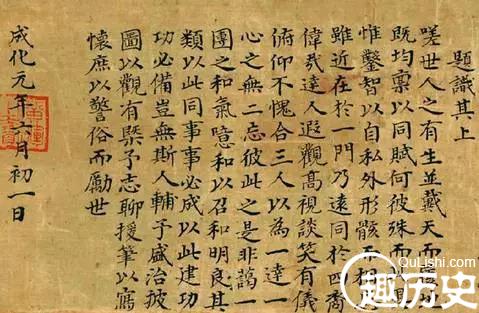 題識其上
嗟世人之有生並戴天而履地
既均禀以同賦何彼殊而此
惟鑿智以自私外形骸而相忌
雖近在於一門乃遠同於四裔
偉哉達人遐觀高視談笑有儀
俯仰不愧合三人以為一達一
心之無二忘彼此之是非藹一
團之和氣噫和以召和明良其
類以此同事事必成以此建功
功必備豈無斯人輔予盛治披
圖以觀有槩予志聊援筆以寫
懷庶以警俗而勵世
成化元年六月初一日
QuLishi.com
趣历史